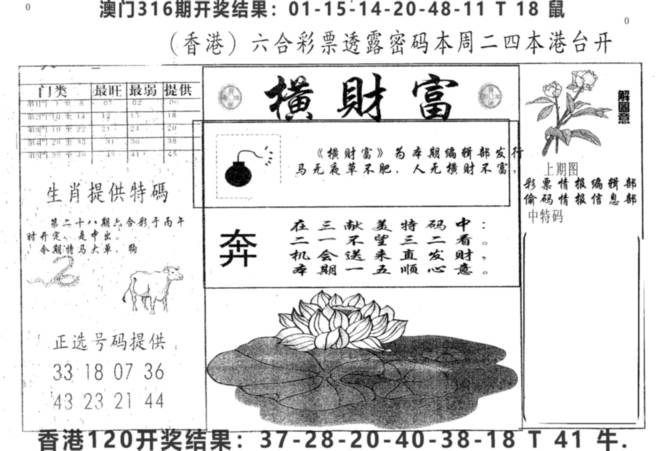 澳门316期开奖结果：01-15-14-20-48-11 T 18 鼠
0
0
（香港）六合彩票透露密码本周二四本港台开
门类 最旺 最弱 提供
生肖提供特碼
第二十八期六合彩于丙午
时开定、是中出。
今期特马大单 狗
正选号码提供
33 18 07 36
43 23 21 44
橫財富
《横财富》为本期编辑部发行
马无夜草不肥，人无横财不富。
奔
在三献美特码中：
二一不望三二看。
机会送来直发财，
本期一五顺心意。
解圖意
上期图
彩票情报编辑部
偷码情报信息部
中特码
香港120开奖结果：37-28-20-40-38-18 T 41 牛.